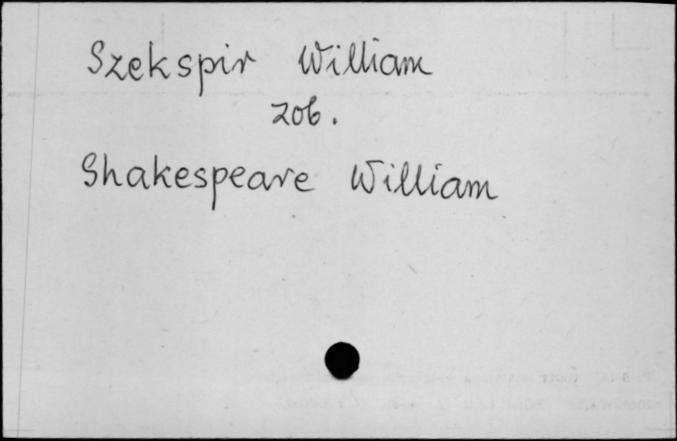 Szekspir William
zob.
Shakespeare William